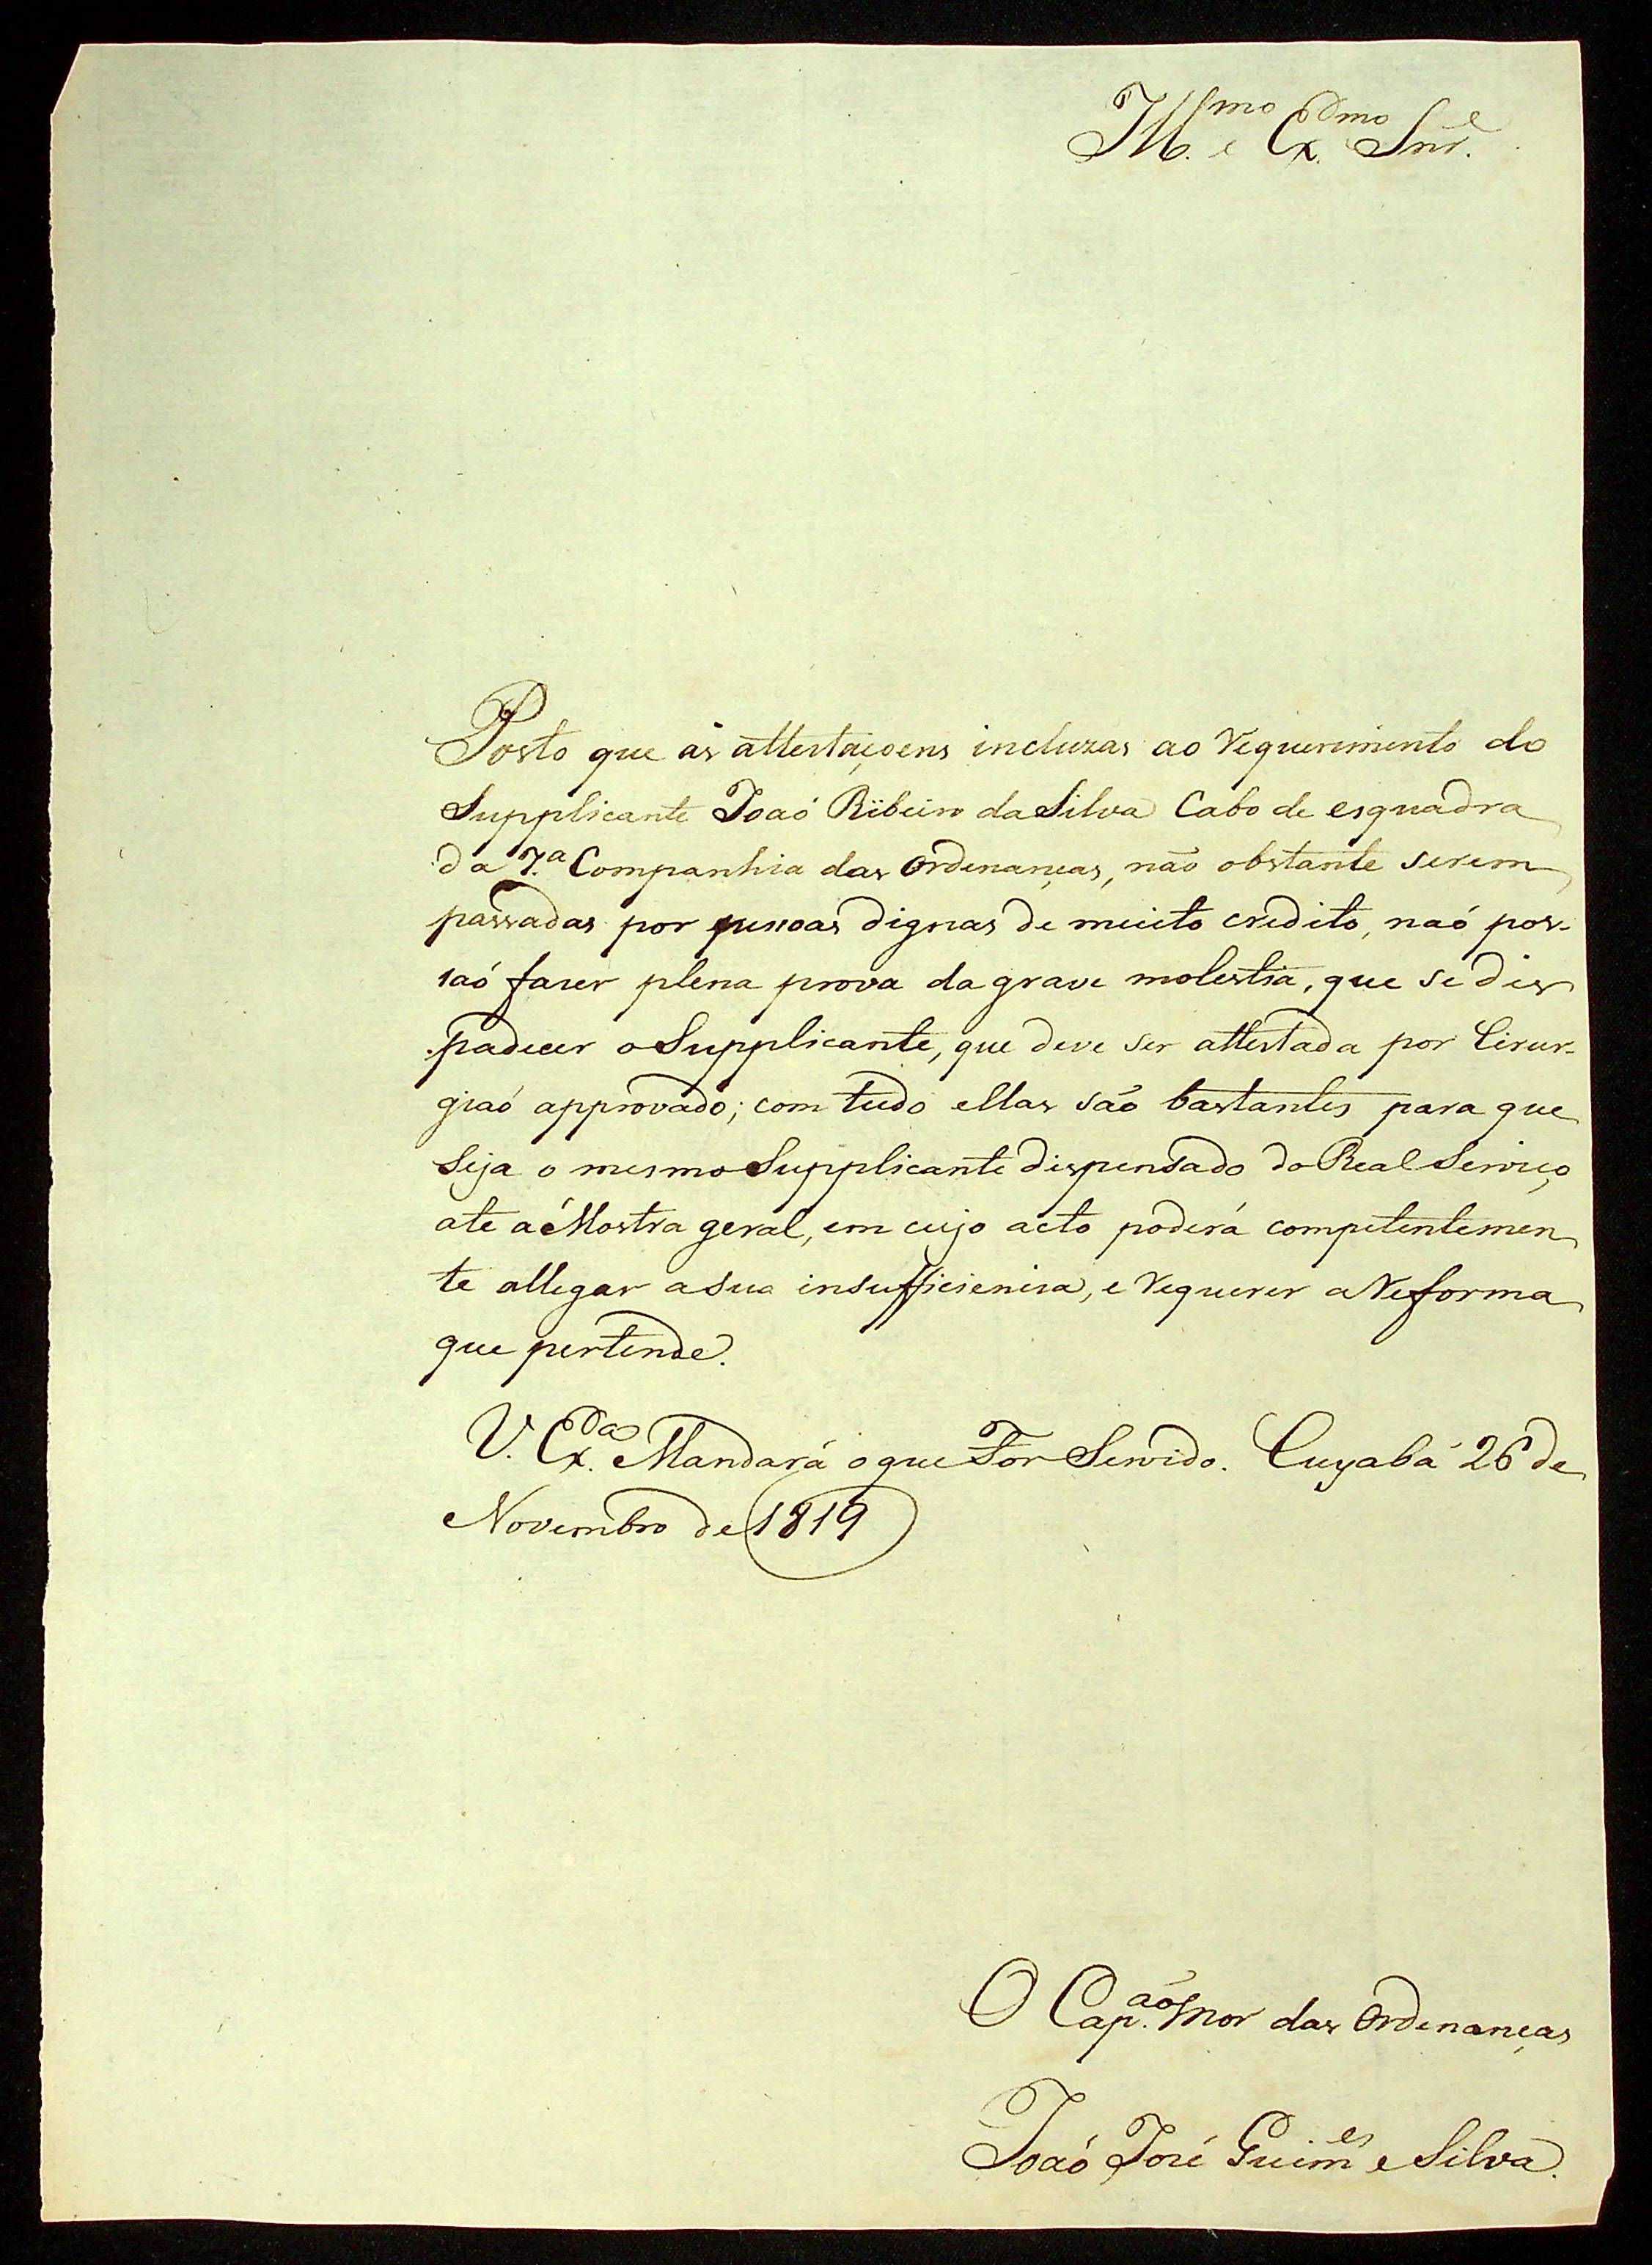 Ill.mo e Ex.mo Snr.e
Posto que as attestaçoens incluzas ao requerimento do
Supplicante Joaó Ribeiro da Silva Cabo de esquadra
da 7.a Companhia das Ordenanças, não obstante serem
passadas por pessoas dignas de muito credito, naó pos-
saó fazer plena prova da grave molestia, que se diz
padecer o Supplicante, que deve ser attestada por Cirur-
giaó approvado; com tudo ellas são bastantes para que
seja o mesmo Supplicante dispensado do Real Serviço
ate a Mostra geral, em cujo acto poderá competentemen
te allegar a sua insufficiencia, e requerer a reforma
que pertende.
V. Ex.a Mandará o que For Servido. Cuyabá 26 de
Novembro de 1819
O Cap.aõ Mor das Ordenanças
Joaó José Guim.es e Silva.